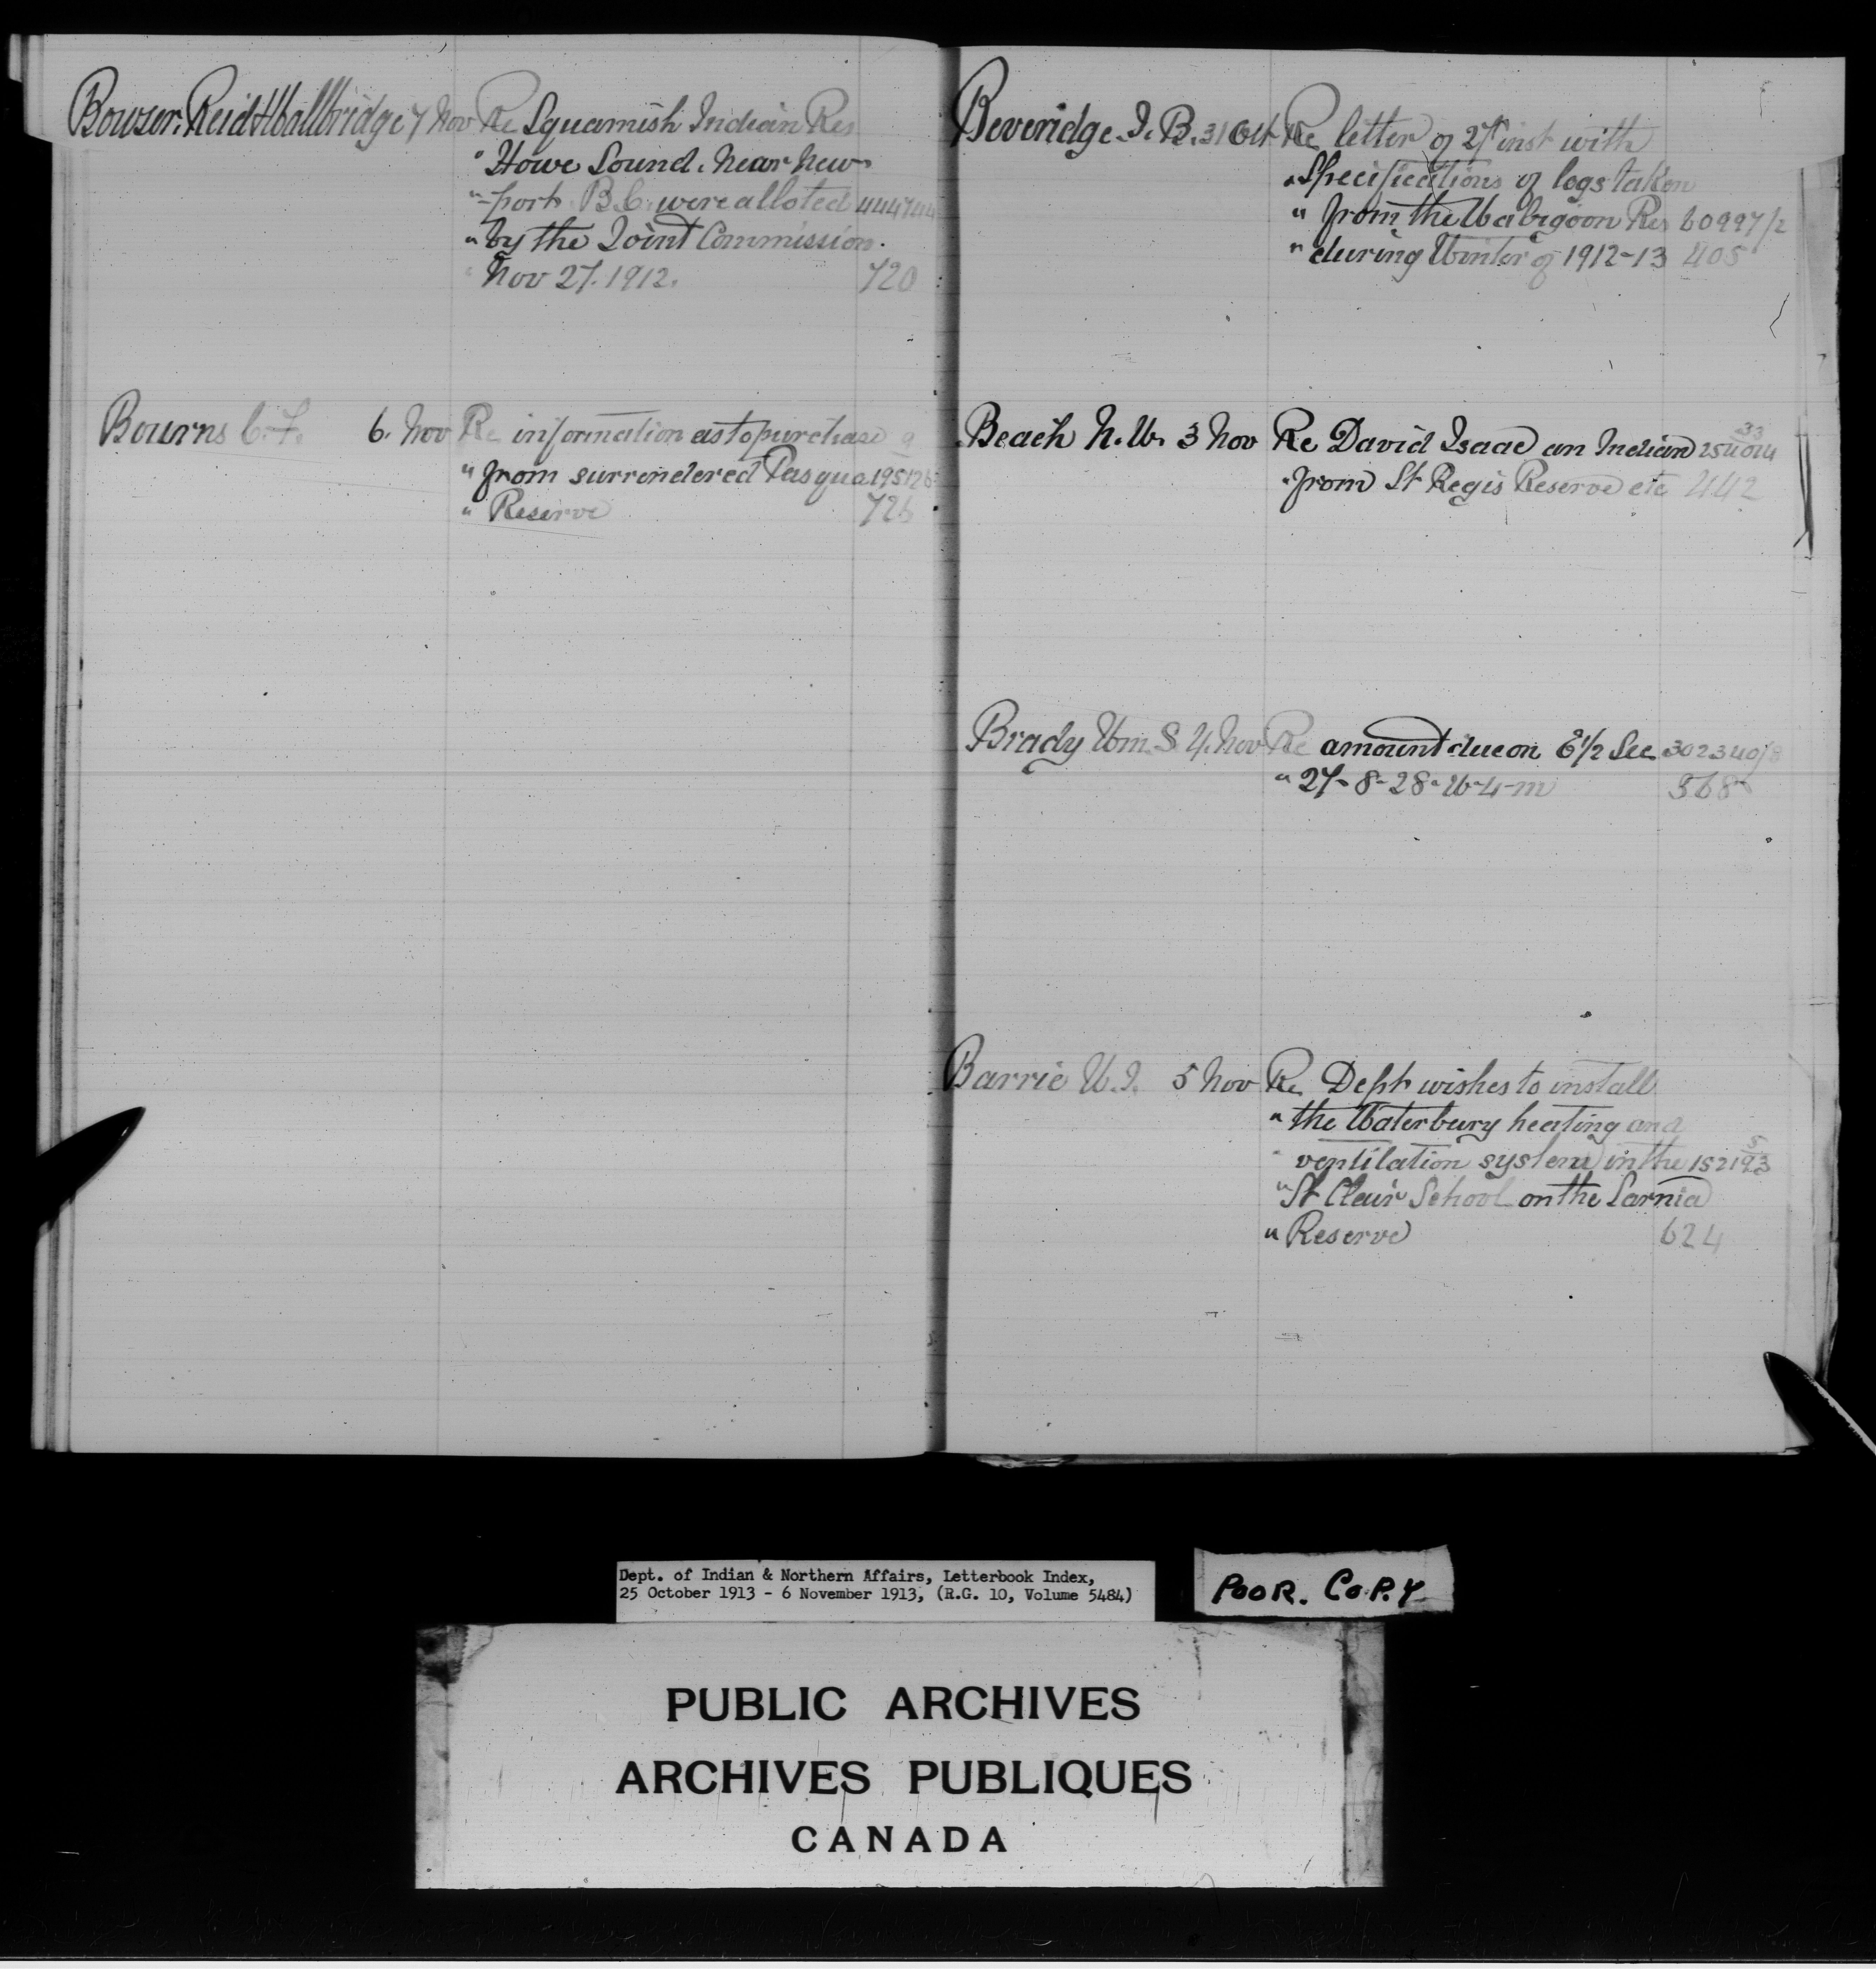 Bowser. Reid & Wallbridge 7 Nov Re Squamish Indian Res
" Howe Sound. Near New-
" -port. B.C. were alloted 444744
" by the Joint Commission.
" Nov 27. 1912. 720
Bourns C. F. 6. Nov Re information as to purchase
" from surrendered Pasqua 195126
" Reserve 726
Beveridge. J. B. 31 Oct Re letter of 27th inst with
" Specifications of logs taken
" from the Wabigoon Res 60997/2
" during Winter of 1912-13 405
Beach N. W. 3 Nov Re David Isaac an Indian 254014 33
" from St Regis Reserve etc 442
Brady Wm S. 4. Nov Re amount due on E 1/2 Sec 302340/8
" 27-8-28-W-4-m 568
Barrie W. J. 5 Nov Re Dept wishes to install
" the Waterbury heating and
" ventilation system in the 152193 5
" St Clair School on the Sarnia
" Reserve 624
Dept. of Indian & Northern Affairs, Letterbook Index,
25 October 1913 - 6 November 1913, (R.G. 10, Volume 5484)
POOR. COPY
PUBLIC ARCHIVES
ARCHIVES PUBLIQUES
CANADA